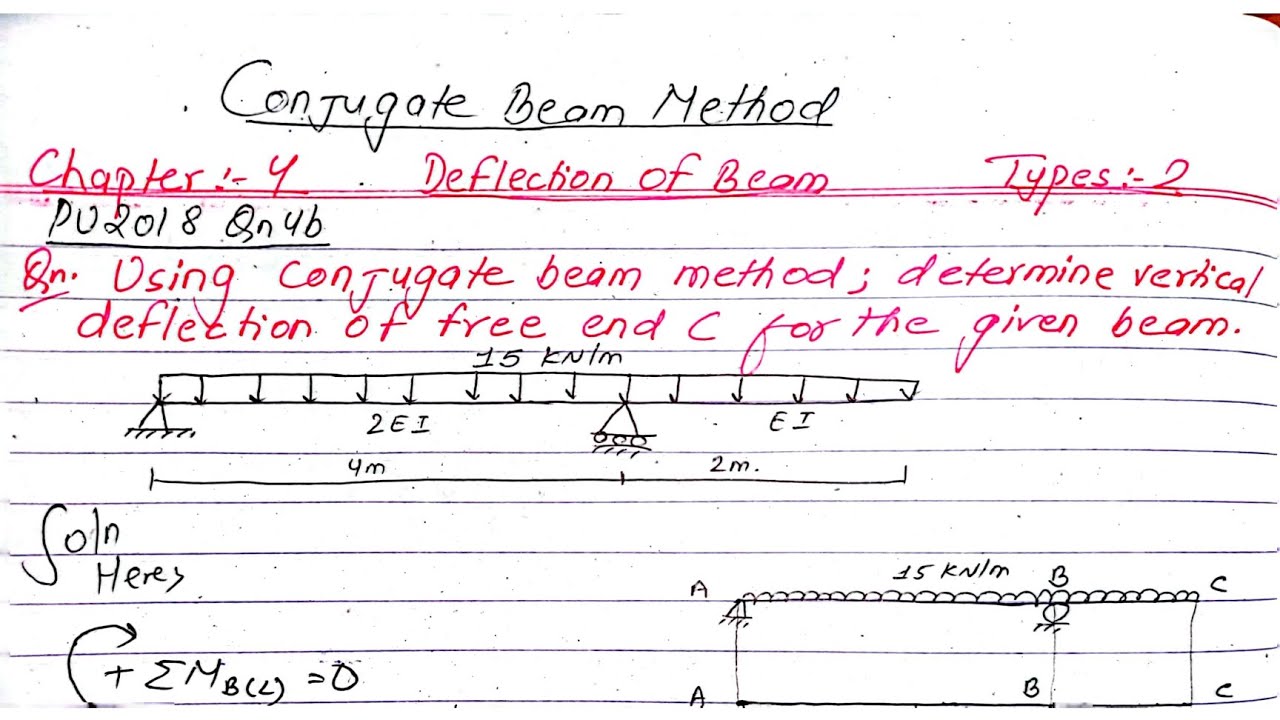 Conjugate Beam Method
Chapter:- 4 Deflection of Beam Types:- 2
PU 2018 Qn 4b
Qn. Using conjugate beam method; determine vertical
deflection of free end C for the given beam.
15 KN/m
2EI EI
4m 2m.
Soln
Here,
15 KN/m
A B C
+ ΣM_B(L) = 0
A B C